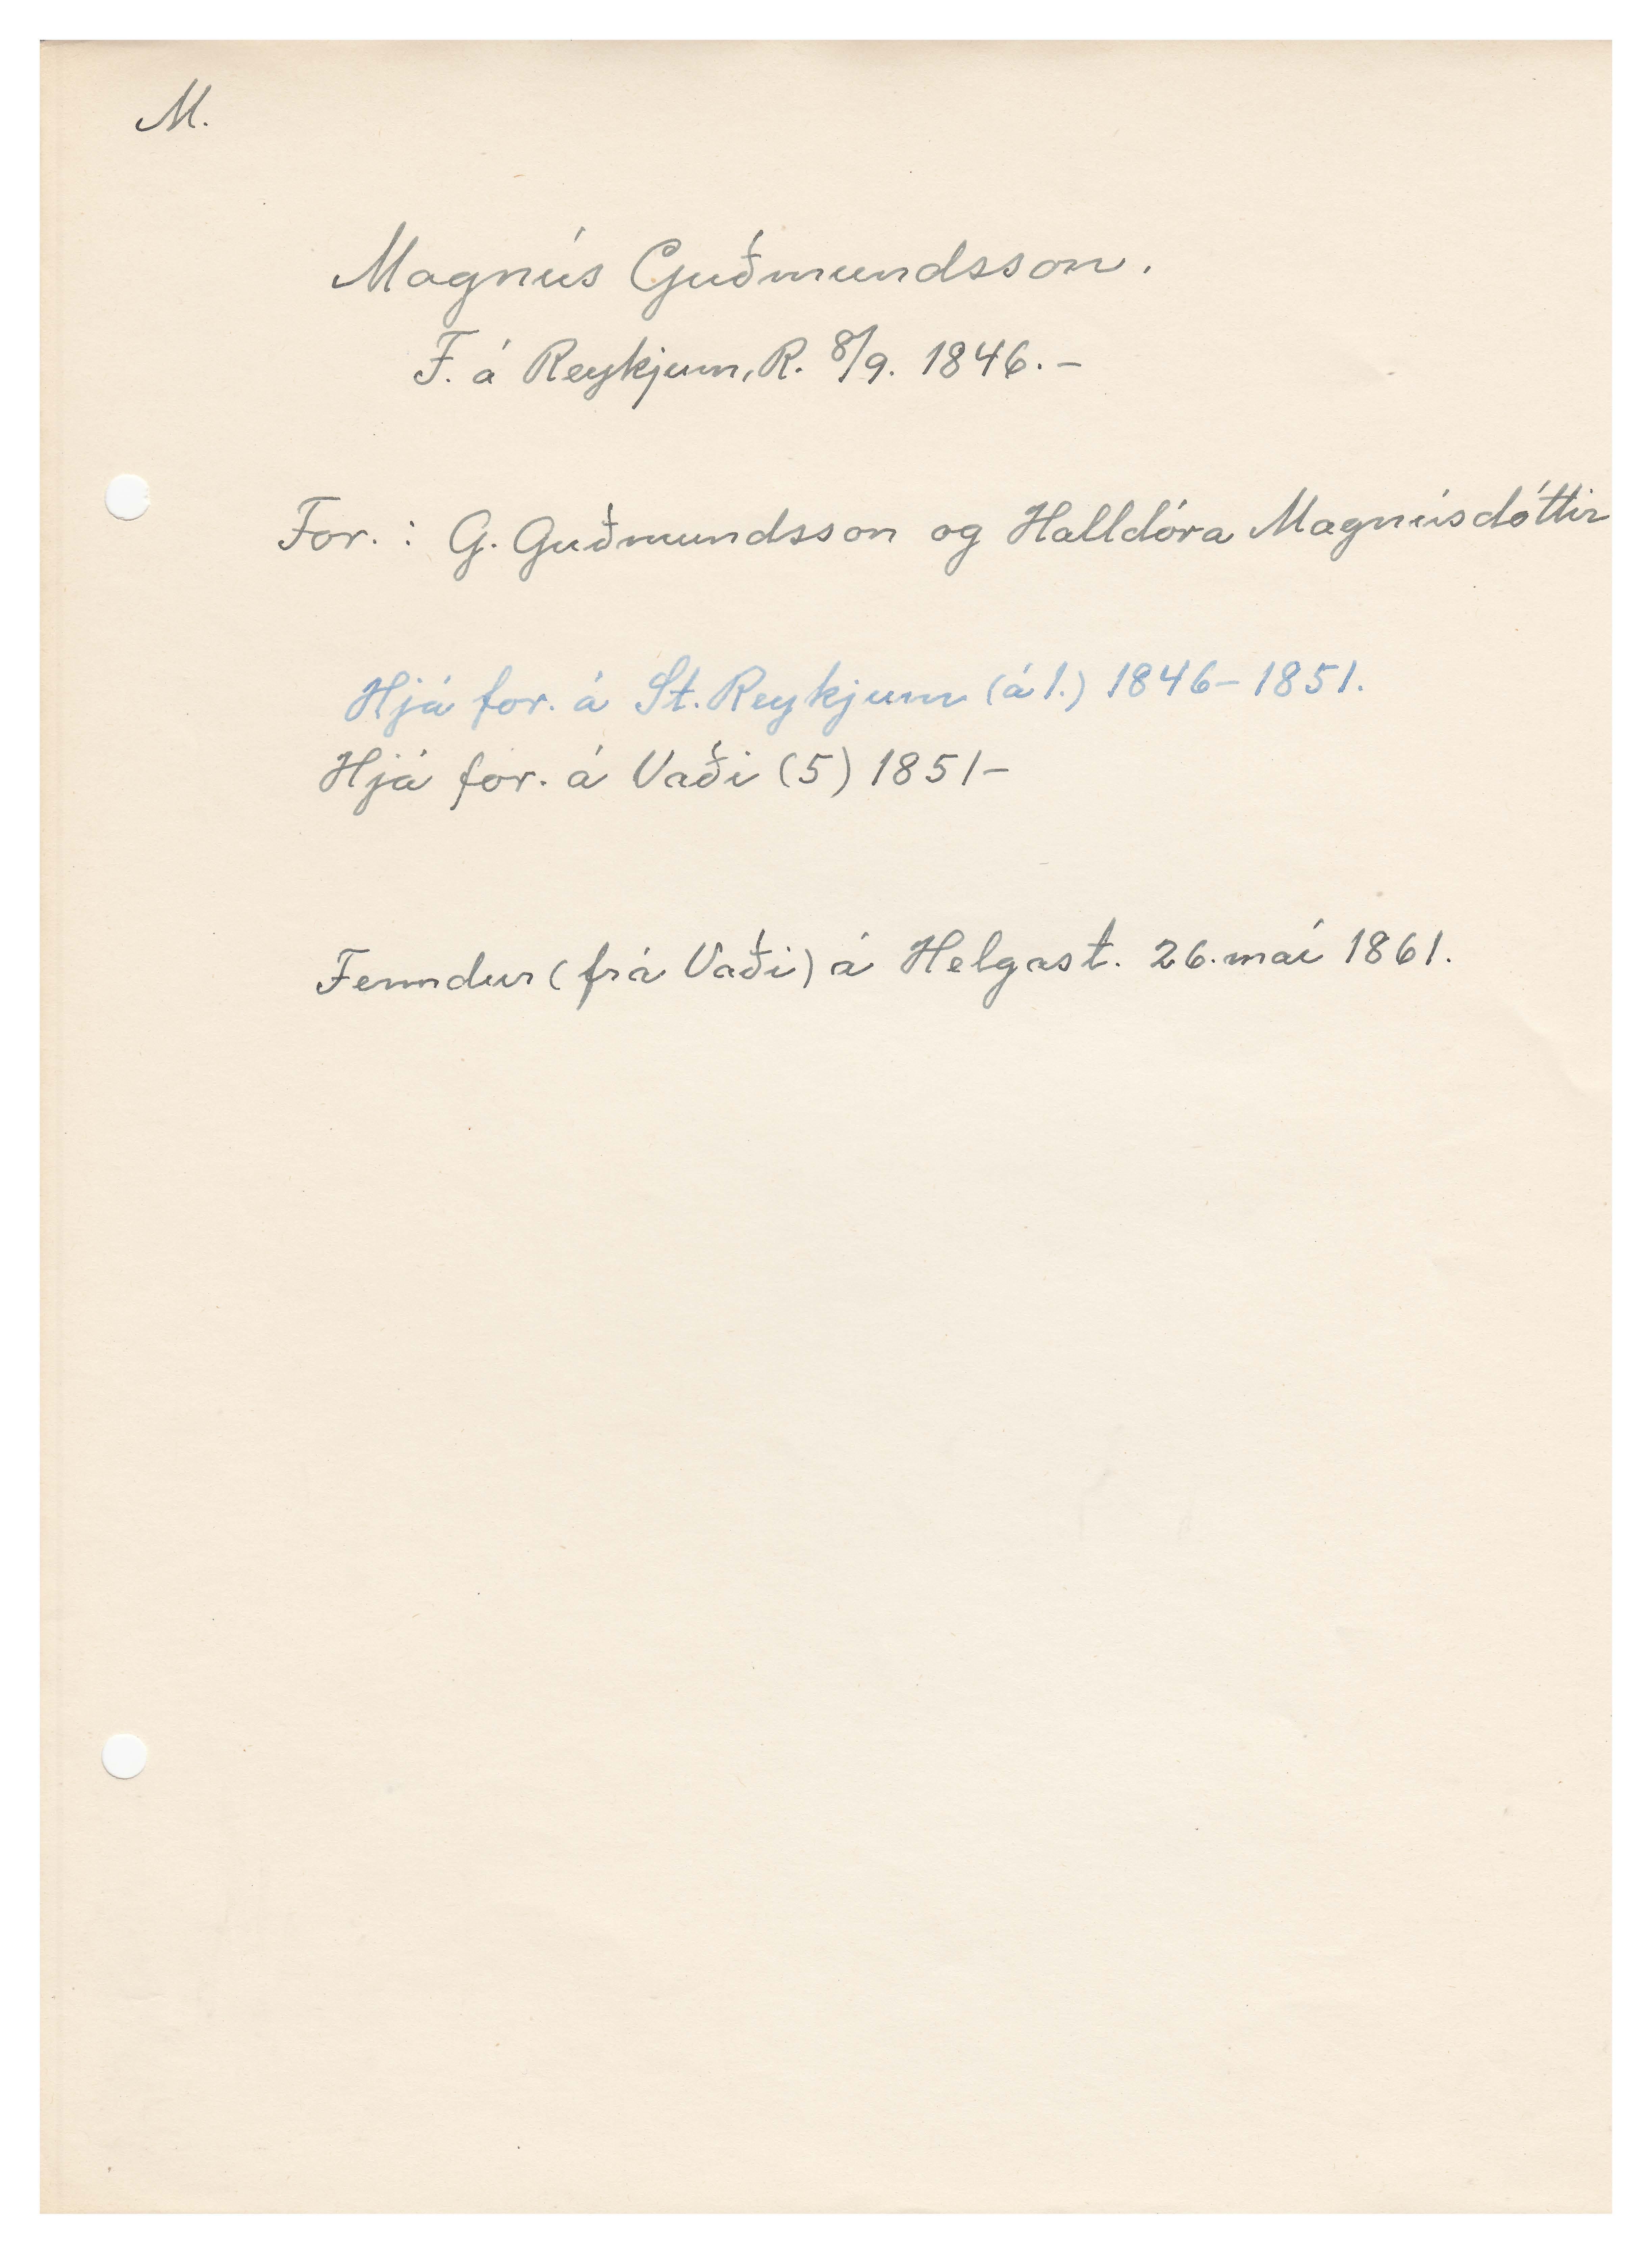 M.
Magnús Guðmundsson.
F. á Reykjum, R. 8/9. 1846.-
For.: G. Guðmundsson og Halldóra Magnúsdóttir
Hjá for. á St. Reykjum (á 1.) 1846-1851.
Hjá for. á Vaði (5) 1851-
Fermdur (frá Vaði) á Helgast. 26. maí 1861.